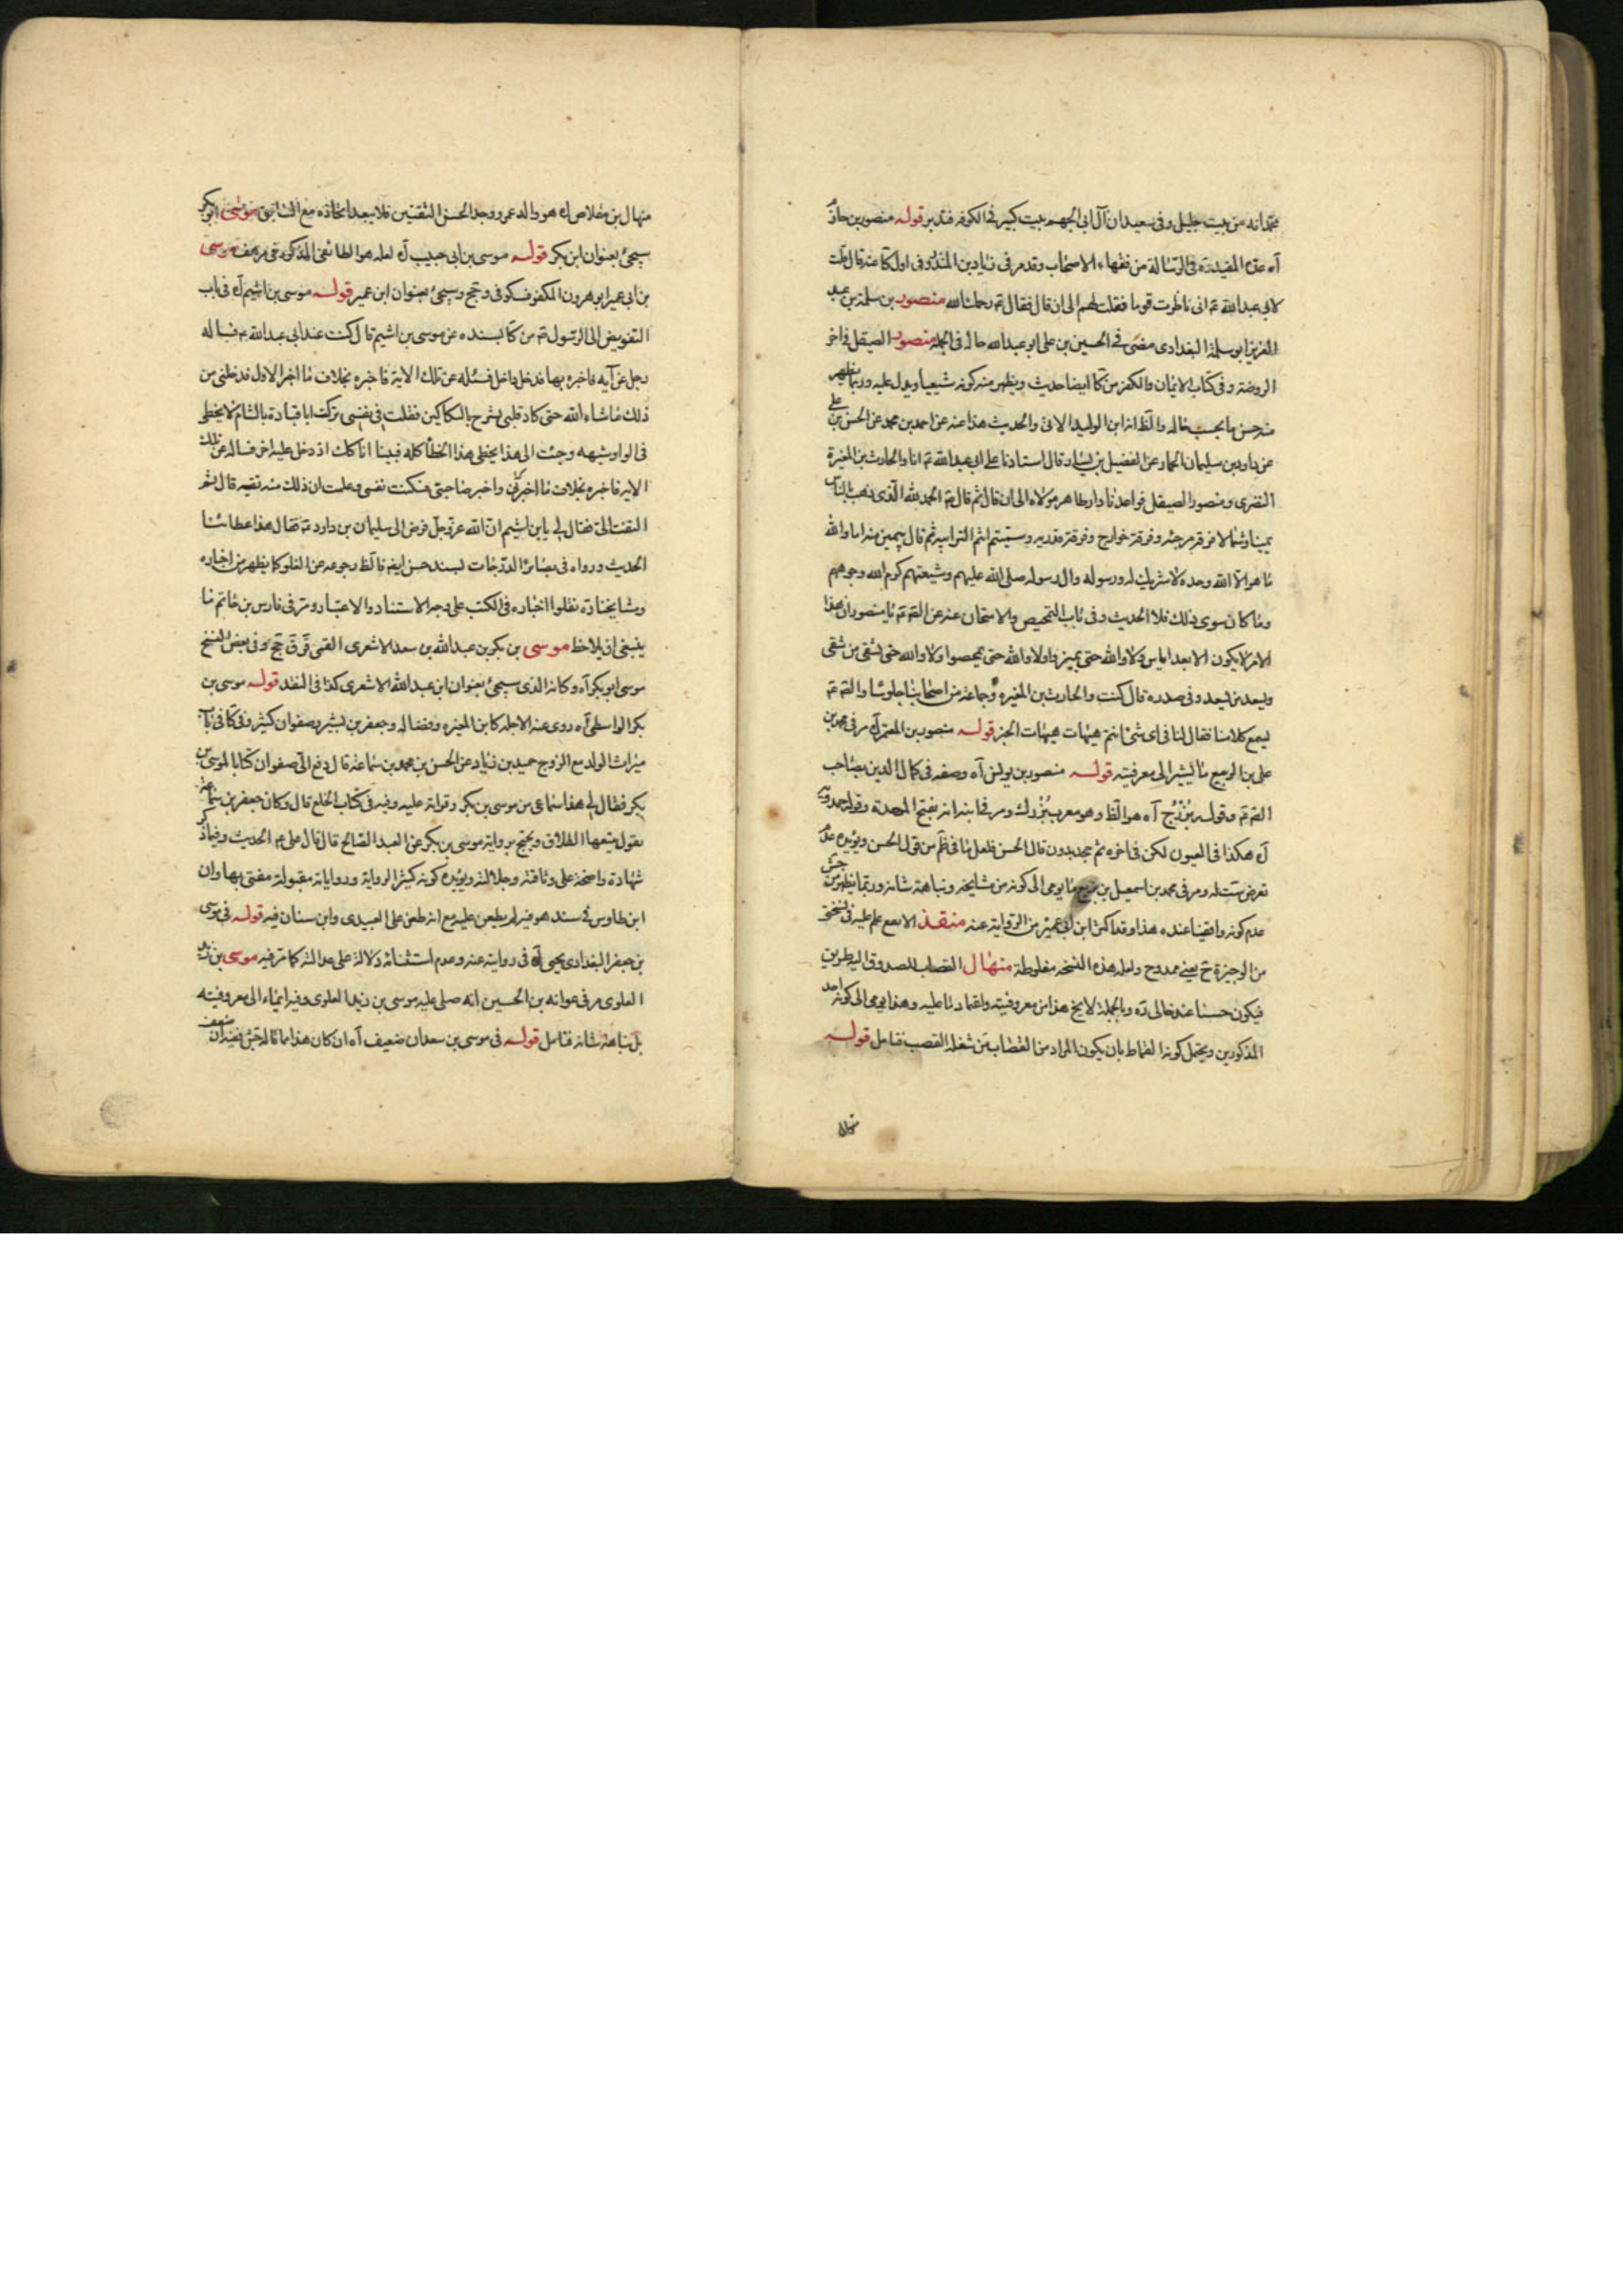 محمد انه من بيت جليل وفى سعيد ان آل ابى الجهم بيت كبير فى الكوفه فتدبر قوله منصور بن حازم
آه عده المفيد ره فى الرسالة من فقهاء الاصحاب وقد مر فى زياد بن المنذر وفى اول كا عنه قال قلت
لابى عبد الله ع انى ناظرت قوما فقلت لهم الى ان قال فقال ع رحمك الله منصور بن سلمة بن عبد
العزيز ابو سلمة البغدادى مضى فى الحسين بن على ابو عبد الله حاله فى الجملة منصور الصيقل فى اخر
الروضة وفى كتاب الايمان والكفر من كا ايضا حديث ويظهر منه كونه شيعيا ويدل عليه وربما يظهر
منه حسن ما بحسب حاله والظ انه ابن الوليد الاتى والحديث هذا عنه عن احمد بن محمد عن الحسن بن على
عن داود بن سليمان الحمار عن الفضيل بن يسار قال استاذنا على ابى عبد الله ع انا والحارث بن المغيرة
النضرى ومنصور الصيقل فواعدنا دار طاهر مولاه الى ان قال ثم قال ع الحمد لله الذى ذهب الناس
يمينا وشمالا فرقة مرجئه وفرقة خوارج وفرقة قدريه وسميتم انتم الترابيه ثم قال بيمين منه اما والله
ما هو الا الله وحده لا شريك له ورسوله وال رسوله صلى الله عليهم وشيعتهم كرم الله وجوههم
وما كان سوى ذلك فلا الحديث وفى باب التمحيص والامتحان عنه عن الصة ع يا منصور ان هذا
الامر لا يكون الا بعد اياس ولا والله حتى تميزوا ولا والله حتى تمحصوا ولا والله حتى يشقى من يشقى
ويسعد من يسعد وفى صدره قال كنت والحارث بن المغيره وجماعة من اصحابنا جلوسا والصة ع
يسمع كلامنا فقال لنا فى اى شئ انتم هيهات هيهات الخبر قوله منصور بن المعتمر آه مر فى محمد بن
على بن الربيع ما يشير الى معرفيته قوله منصور بن يونس آه وصفه فى كمال الدين بصاحب
الصة ع وقوله بُزُرْج آه هو الظ وهو معرب بُزُرك ومر فى ابنه انه بفتح الموحدة وقوله حمدويه
آه هكذا فى العيون لكن فى اخره ثم جحد بدون قال الحسن فلعل ما فى ظم من قول الحسن ويؤيده عدم
تعرض ست له ومر فى محمد بن اسمعيل بن بزيع ما يومى الى كونه من مشايخه ونباهة شانه وربما يظهر من جش
عدم كونه واقفيا عنده هذا وقد اكثر ابن ابى عمير من الرواية عنه منقذ الابقع علم عليه فى نسختى
من الوجيزة ح يعنى ممدوح ولعله هذه النسخه مغلوطة منهال القصاب للصدوق اليه طريق
فيكون حسنا عند خالى ره وبالجملة لا يخ هذا من معروفيته واعتماد ما عليه وهذا يومى الى كونه احد
المذكورين ويحتمل كونه القماط بان يكون المراد من القصاب من شغله القصب فتامل قوله
منهال
منهال بن مقلاص آه هو والد عمر وجد الحسن الثقتين فلا يبعد اتحاده مع السابق موسى ابو بكر
سيجئ بعنوان ابن بكر قوله موسى بن ابى حبيب آه لعله هو الطائفى المذكور فى مرهف موسى
بن ابى عمير ابو هرون المكفوف كوفى ق جخ وسيجئ بعنوان ابن عمير قوله موسى بن اشيم آه فى باب
التفويض الى الرسول ع من كا بسنده عن موسى بن اشيم قال كنت عند ابى عبد الله ع فساله
رجل عن آيه فاخبره بها فدخل داخل فسئله عن تلك الاية فاخبره بخلاف ما اخبر الاول فدخلنى من
ذلك ما شاء الله حتى كاد قلبى يشرح بالسكاكين فقلت فى نفسى تركت ابا قتادة بالشام لا يخطى
فى الواو وشبهه وجئت الى هذا يخطى هذا الخطأ كله فبينا انا كك اذ دخل عليه اخر فساله عن تلك
الايه فاخبره بخلاف ما اخبرنى واخبر صاحبى فسكنت نفسى وعلمت ان ذلك منه تقيه قال ثم
التفت الى فقال لى يا بن اشيم ان الله عز وجل فوض الى سليمان بن داود ع فقال هذا عطاؤنا
الحديث ورواه فى بصائر الدرجات بسند حسن ايضا فالظ رجوعه عن الغلو كما يظهر من اخباره
ومشايخنا ره نقلوا اخباره فى الكتب على وجه الاستناد والاعتبار ومر فى فارس بن حاتم ما
ينبغى ان يلاحظ موسى بن بكر بن عبد الله بن سعد الاشعرى القمى ق جخ وفى بعض النسخ
موسى ابو بكر آه وكانه الذى سيجئ بعنوان ابن عبد الله الاشعرى كذا فى النقد قوله موسى بن
بكر الواسطى آه روى عنه الاجلة كابن المغيره وفضاله وجعفر بن بشير وصفوان كثير وفى كا فى باب
ميراث الولد مع الزوج حميد بن زياد عن الحسن بن محمد بن سماعة قال دفع الى صفوان كتابا لموسى بن
بكر فقال لى هذا سماعى من موسى بن بكر وقراته عليه وفيه فى كتاب الخلع قال وكان جعفر بن سماعة
يقول يتبعها الطلاق ويحتج برواية موسى بن بكر عن العبد الصالح قال قال على ع الحديث وفيما ذكر
شهادة واضحة على وثاقته وجلالته ويؤيده كونه كثير الرواية ورواياته مقبولة مفتى بها وان
ابن طاوس فى سند هو فيه لم يطعن عليه مع انه طعن على العبيدى وابن سنان فيه قوله فى موسى
بن جعفر البغدادى يحيى آه فى روايته عنه وعدم استثنائه دلالة على عدالته كما مر فيه موسى بن زيد
العلوى مر فى عوانه بن الحسين انه صلى عليه موسى بن زيد العلوى وفيه ايماء الى معروفيته
بل نباهة شانه فتامل قوله فى موسى بن سعدان ضعيف آه ان كان هذا مما قاله جش ففيه ان ضعف